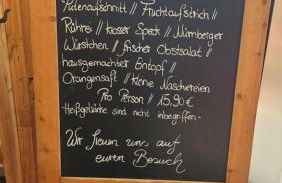 Putenaufschnitt // Fruchtaufstrich //
Rührei // krosser Speck // Nürnberger
Würstchen // frischer Obstsalat //
hausgemachter Eintopf //
Orangensaft // kleine Naschereien
Pro Person // 15,90 €
-Heißgetränke sind nicht inbegriffen-
Wir freuen uns auf
euren Besuch